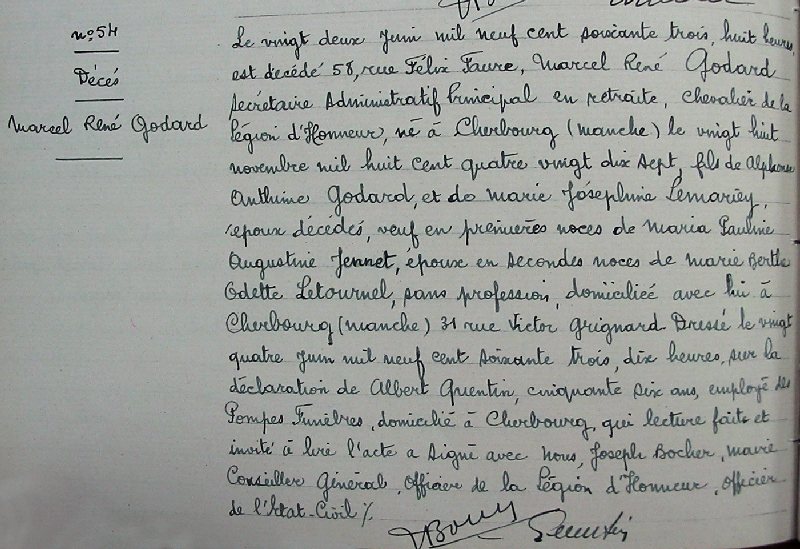 n° 54
Décés
Marcel René Godard
Le vingt deux Juin mil neuf cent soixante trois, huit heures,
est décédé 58, rue Félix Faure, Marcel René Godard
Secrétaire Administratif Principal en retraite, Chevalier de la
légion d'Honneur, né à Cherbourg (Manche) le vingt huit
novembre mil huit cent quatre vingt dix sept, fils de Alphonse
Anthime Godard, et de Marie Joséphine Lemariey,
époux décédés, veuf en premières noces de Maria Pauline
Augustine Jennet, époux en secondes noces de Marie Berthe
Odette Letournel, sans profession, domiciliée avec lui à
Cherbourg (Manche) 31 rue Victor Grignard Dressé le vingt
quatre Juin mil neuf cent soixante trois, dix heures, sur la
déclaration de Albert Quentin, cinquante six ans, employé des
Pompes Funèbres, domicilié à Cherbourg, qui lecture faite et
invité à lire l'acte a signé avec Nous, Joseph Bocher, Maire
Conseiller Général, Officier de la légion d'Honneur, Officier
de l'Etat-Civil ./.